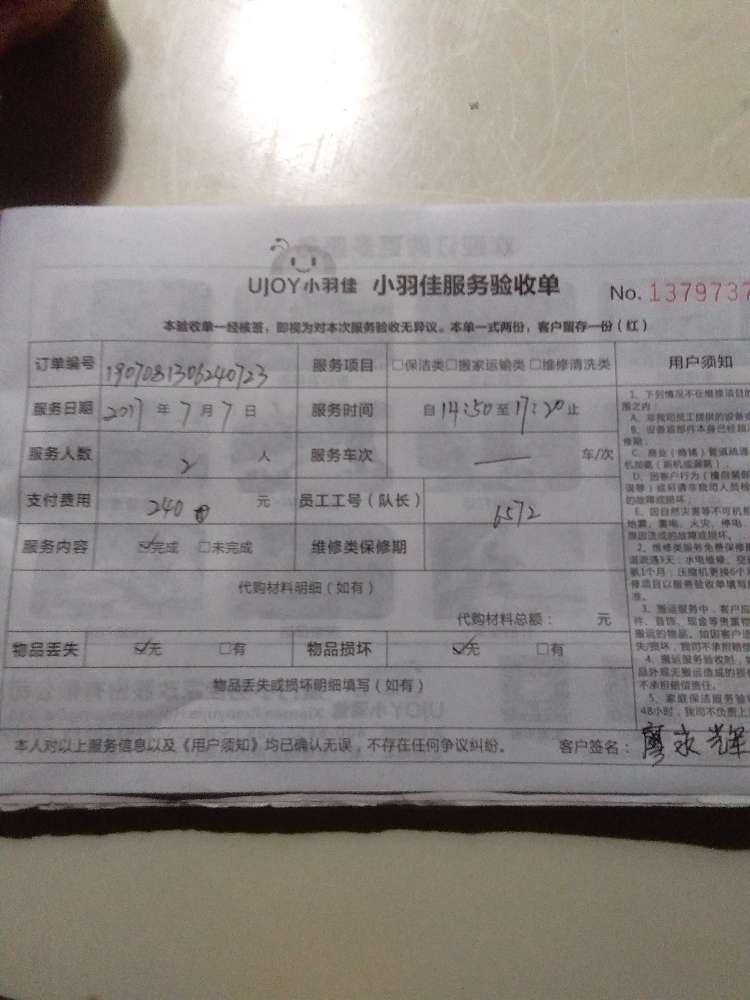 UJOY小羽佳 小羽佳服务验收单
No. 1379737
本验收单一经核签，即视为对本次服务验收无异议。本单一式两份，客户留存一份（红）
订单编号 1907081306240723 服务项目 □保洁类□搬家运输类□维修清洗类 用户须知
服务日期 2017 年 7 月 7 日 服务时间 自 14:50 至 17:20 止
服务人数 2 人 服务车次 — 车/次
支付费用 240 元 员工工号（队长） 6572
服务内容 ☑完成 □未完成 维修类保修期
代购材料明细（如有）
代购材料总额： 元
物品丢失 ☑无 □有 物品损坏 ☑无 □有
物品丢失或损坏明细填写（如有）
本人对以上服务信息以及《用户须知》均已确认无误，不存在任何争议纠纷。 客户签名：廖永辉
1、下列情况不在维修项目的
围之内：
A、非我司员工提供的设备
修期；
C、商业（商铺）管道疏通
机加氨（新机或漏氨）
D、因客户行为（擅自
的故障或损坏；
E、因自然灾害等不可机
地震、雷电、火灾、停电
原因造成的故障或损坏。
2、维修类服务免费保修期
道疏通3天；水电维修、空
氨1个月；压缩机更换6个月
修项目以服务验收单填写
准。
3、搬运服务中，客户应
件、首饰、现金等贵重物
搬运的物品。如因客户
失/损坏，我司不承担赔偿
4、搬运服务验收时，
品外观无搬运造成的损
不承担赔偿责任。
5、家庭保洁服务验收
48小时，我司不负责上